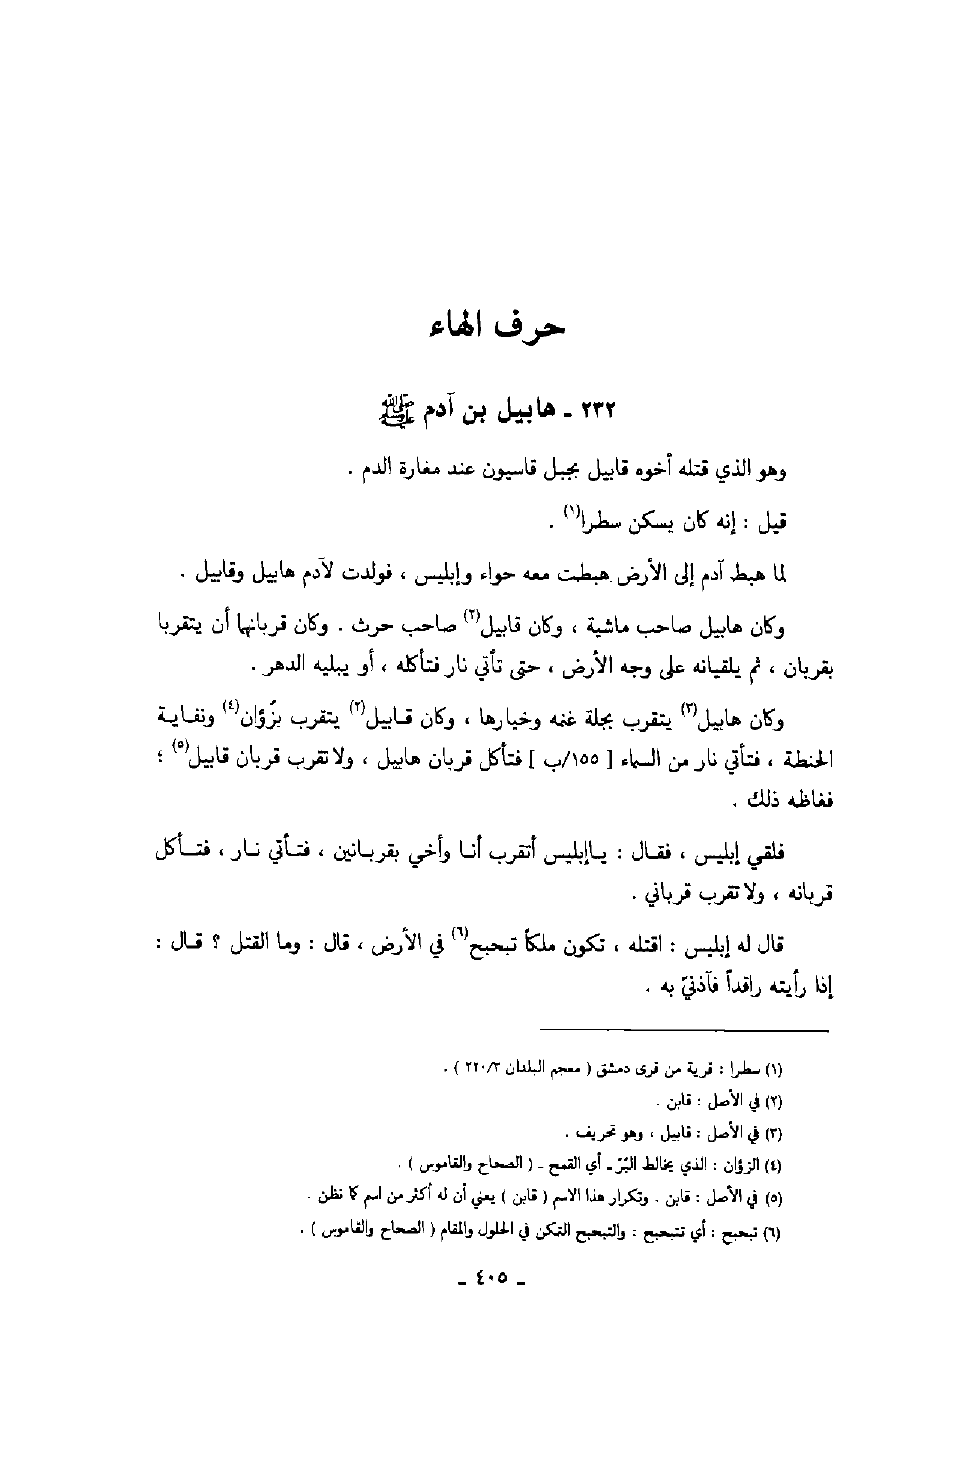 حرف الهاء
٢٣٢ - هابيل بن آدم ﷺ
وهو الذي قتله أخوه قابيل بجبل قاسيون عند مغارة الدم .
قيل : إنه كان يسكن سطرا(١) .
لما هبط آدم إلى الأرض هبطت معه حواء وإبليس ، فولدت لآدم هابيل وقابيل .
وكان هابيل صاحب ماشية ، وكان قابيل(٢) صاحب حرث . وكان قربانها أن يتقربا
بقربان ، ثم يلقيانه على وجه الأرض ، حتى تأتي نار فتأكله ، أو يبليه الدهر .
وكان هابيل(٣) يتقرب بجلة غنمه وخيارها ، وكان قابيل(٢) يتقرب بزُؤان(٤) ونفاية
الحنطة ، فتأتي نار من السماء [ ١٥٥/ب ] فتأكل قربان هابيل ، ولا تقرب قربان قابيل(٥) ؛
فغاظه ذلك .
فلقي إبليس ، فقال : يا إبليس أتقرب أنا وأخي بقربانين ، فتأتي نار ، فتأكل
قربانه ، ولا تقرب قرباني .
قال له إبليس : اقتله ، تكون ملكاً تبحبح(٦) في الأرض ، قال : وما القتل ؟ قال :
إذا رأيته راقداً فآذنّي به .
(١) سطرا : قرية من قرى دمشق ( معجم البلدان ٢٢٠/٣ ) .
(٢) في الأصل : قابن .
(٣) في الأصل : قابيل ، وهو تحريف .
(٤) الزؤان : الذي يخالط البُرّ - أي القمح - ( الصحاح والقاموس ) .
(٥) في الأصل : قابن . وتكرار هذا الاسم ( قابن ) يعني أن له أكثر من اسم كما نظن .
(٦) تبحبح : أي تتبحبح : والتبحبح التمكن في الحلول والمقام ( الصحاح والقاموس ) .
- ٤٠٥ -